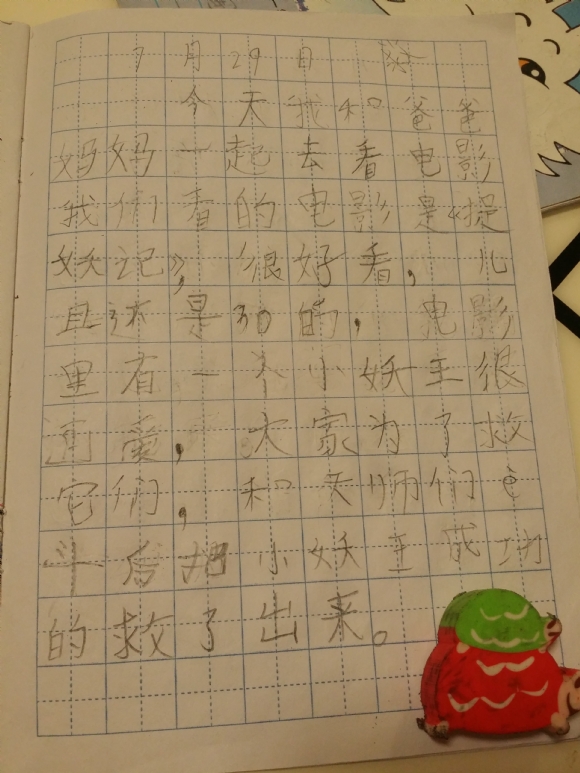 7月29日
今天我和爸爸
妈妈一起去看电影
我们看的电影是《捉
妖记》,很好看,儿
且还是3D的,电影
里有一个小妖王很
可爱,大家为了救
它们,和天师们è
斗后把小妖王成功
的救了出来。